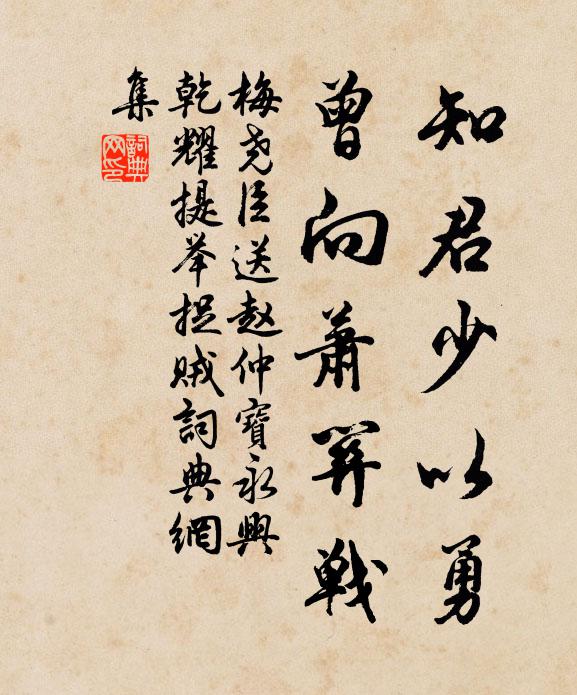 知君少以勇
曾向萧关战
梅尧臣送赵仲寶永興
乾耀提举捉贼詞典網
集
詞典網印